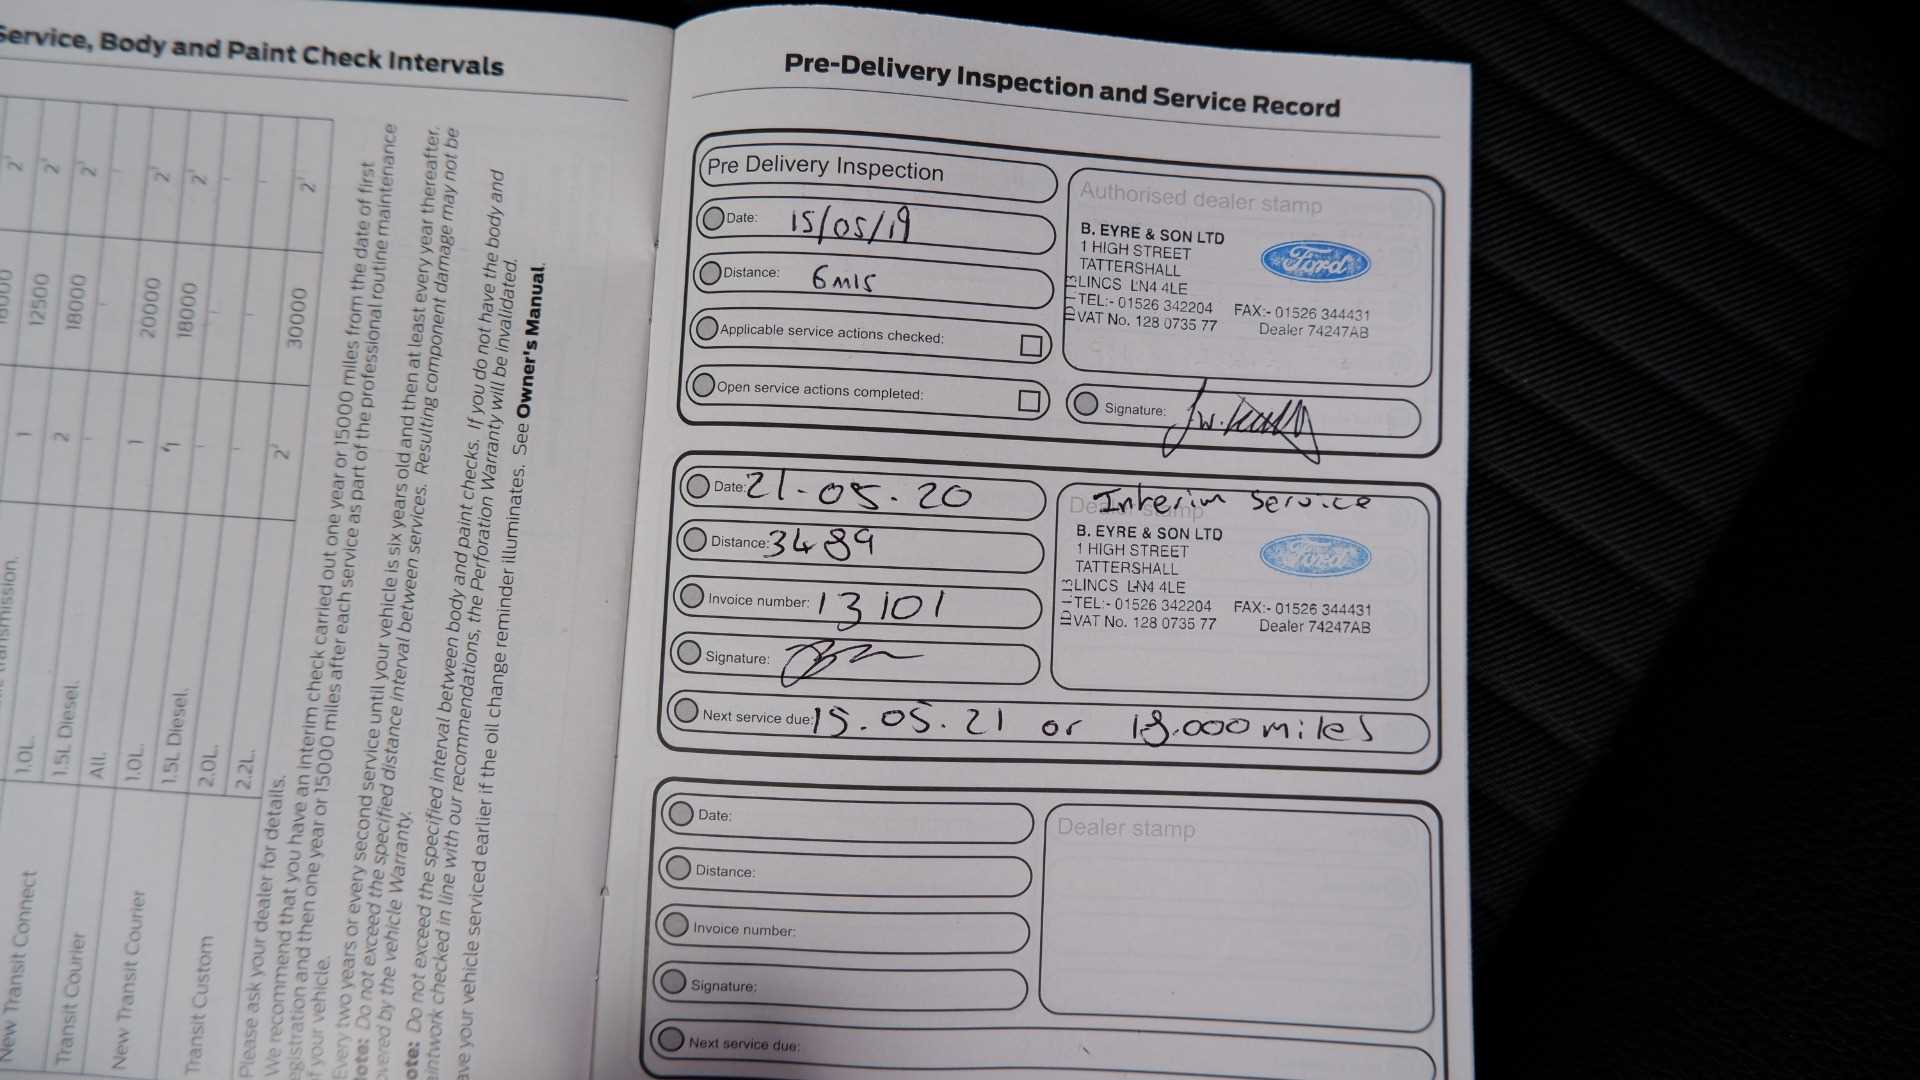 Service, Body and Paint Check Intervals
2¹ 2¹ 2¹ - 2¹ 2¹ - - 2¹
12500 18000 - 20000 18000 - - 30000
1 2 - 1 1 - - 2¹
1.0L. 1.5L Diesel. All. 1.0L. 1.5L Diesel. 2.0L. 2.2L.
New Transit Connect
Transit Courier
New Transit Courier
Transit Custom
Please ask your dealer for details.
We recommend that you have an interim check carried out one year or 15000 miles from the date of first
registration and then one year or 15000 miles after each service as part of the professional routine maintenance
of your vehicle.
Every two years or every second service until your vehicle is six years old and then at least every year thereafter.
Note: Do not exceed the specified distance interval between services. Resulting component damage may not be
covered by the vehicle Warranty.
Note: Do not exceed the specified interval between body and paint checks. If you do not have the body and
paintwork checked in line with our recommendations, the Perforation Warranty will be invalidated.
Have your vehicle serviced earlier if the oil change reminder illuminates. See Owner's Manual.
Pre-Delivery Inspection and Service Record
Pre Delivery Inspection
Date: 15/05/19
Distance: 6mls
Applicable service actions checked:
Open service actions completed:
Authorised dealer stamp
B. EYRE & SON LTD
1 HIGH STREET
TATTERSHALL
LINCS LN4 4LE
TEL:- 01526 342204 FAX:- 01526 344431
VAT No. 128 0735 77 Dealer 74247AB
Ford
Signature:
Date: 21-05.20
Distance: 3489
Invoice number: 13101
Signature:
Next service due: 15.05.21 or 18.000 miles
Interim Service
Dealer stamp
B. EYRE & SON LTD
1 HIGH STREET
TATTERSHALL
LINCS LN4 4LE
TEL:- 01526 342204 FAX:- 01526 344431
VAT No. 128 0735 77 Dealer 74247AB
Ford
Date:
Distance:
Invoice number:
Signature:
Next service due:
Dealer stamp